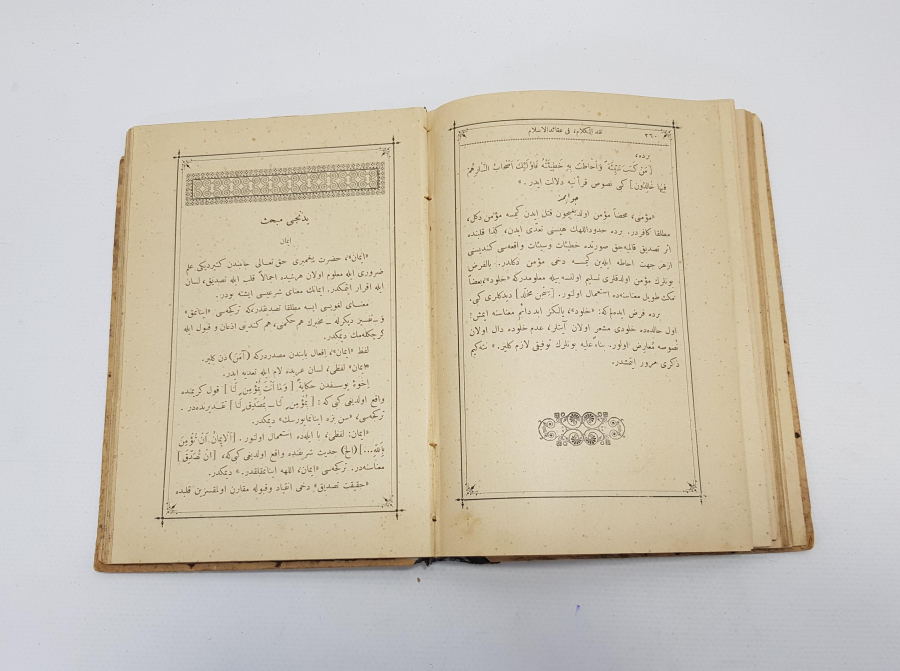 ٢٦٠ نقد الكلام، فى عقائد الاسلام
برده،
[مَنْ كَسَبَ سَيِّئَةً وَاَحَاطَتْ بِهِ خَطِيئَتُهُ فَاُولٰئِكَ اَصْحَابُ النَّارِ هُمْ
فِيهَا خَالِدُونَ] كى نصوص قرآنيه دلالت ايدر. »
جوابمز
«مؤمنى، محضا مؤمن اولديغيچون قتل ايدن كيمسه مؤمن دكل،
مطلقا كافردر. برده حدوداللهك هپسنى تعدّى ايدن، كذا قلبنده
اثر تصديق قالمه‌جق صورتده خطيئات وسيئات واقعه‌سى كنديسنى
ازهر جهت احاطه ايله‌ين كيمسه دخى مؤمن دكلدر. بالفرض
بونلرك مؤمن اولدقلرى تسليم اولنسه بيله معلومدركه «خلود»، بعضاً
مكث طويل معناسنده استعمال اولنور. [سِجْنٌ مُخَلَّد] ديدكلرى كى.
برده فرض ايده‌لم كه: «خلود»، يالكز ابد دائم معناسنه ايمش؛
اول حالده‌ده خلودى مشعر اولان آيتلر، عدم خلوده دال اولان
نصوصه مُعارض اولور. بناءً عليه بونلرك توفيقى لازم كلير. » نته‌كيم
ذكرى مرور ايتمشدر.
يدنجى مبحث
ايمان
«ايمان»، حضرت پيغمبرى حق تعالى جانبندن كتيرديكى علم
ضرورى ايله معلوم اولان هرشيده اجمالاً قلب ايله تصديق، لسان
ايله اقرار ايتمكدر. ايمانك معناى شرعيسى ايشته بودر.
معناى لغويسى ايسه مطلقا تصديقدركه تركجه‌سى «اينانمق»
و ـ تفسير ديكرله ـ مخبرك هم حكمنى، هم كندينى اذعان و قبول ايله
كرچكله‌مك ديمكدر.
لفظ «ايمان»، اِفعال بابندن مصدردركه (آمَنَ) دن كلير.
«ايمان» لفظى، لسان عربده لام ايله تعديه ايدر.
اِخوهٔ يوسفدن حكايةً [وَمَا اَنْتَ بِمُؤْمِنٍ لَنَا] قول كريمنده
واقع اولديغى كى كه: [بِمُؤْمِنٍ لَنَا ــ بِمُصَدِّقٍ لَنَا] تقديرنده‌در.
تركجه‌سى، «سن بزه اينانمايورسك» ديمكدر.
«ايمان» لفظى، با ايله‌ده استعمال اولنور. [اَلْاِيمَانُ اَنْ تُؤْمِنَ
بِاللّٰهِ...] (الخ) حديث شريفنده واقع اولديغى كى كه، [اَنْ تُصَدِّقَ]
معناسنه‌در. تركجه‌سى «ايمان، اللهه اينانمقلقدر. » ديمكدر.
«حقيقت تصديق» دخى انقياد وقبوله مقارن اولمقسزين قلبده